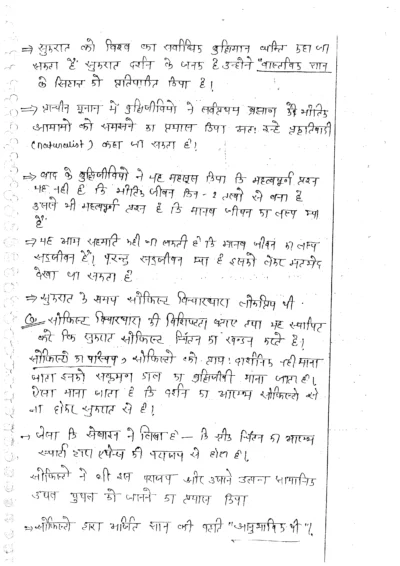 ⇒ सुकरात को विश्व का सर्वाधिक बुद्धिमान व्यक्ति कहा जा
सकता है सुकरात दर्शन के जनक है उन्होंने "वास्तविक ज्ञान
के सिद्धान्त को प्रतिपादित किया है।
⇒ प्राचीन यूनान में बुद्धिजीवियो ने सर्वप्रथम ब्रह्माण्ड के भौतिक
आयामो को समझने का प्रयास किया अतः इन्हे प्रकृतिवादी
(naturalist) कहा जा सकता है।
⇒ बाद के बुद्धिजीवियो ने यह महसूस किया कि महत्वपूर्ण प्रश्न
यह नही है कि भौतिक जीवन किन-2 तत्वो से बना है
उससे भी महत्वपूर्ण प्रश्न है कि मानव जीवन का लक्ष्य क्या
है
⇒ यह आम सहमति कही जा सकती है कि मानव जीवन का लक्ष्य
सद्जीवन है। परन्तु सद्जीवन क्या है इसको लेकर मतभेद
देखा जा सकता है
⇒ सुकरात के समय सोफिस्ट विचारधारा लोकप्रिय थी
Q सोफिस्ट विचारधारा की विशिष्टता बताए तथा यह स्थापित
करे कि सुकरात सोफिस्ट चिंतन का खण्डन करते है।
सोफिस्टो का परिचय > सोफिस्टो को प्रायः दार्शनिक नही माना
जाता इनको संक्रमण काल का बुद्धिजीवी माना जाता है।
ऐसा माना जाता है कि दर्शन का आरम्भ सोफिस्टो से
ना होकर सुकरात से है।
→ जैसा कि सेबाइन ने लिखा है – कि ग्रीक चिंतन का आरम्भ
स्पार्टा द्वारा एथेन्स की पराजय से होता है।
सोफिस्टो ने भी इस पराजय और उससे उत्पन्न सामाजिक
उथल पुथल को जानने का प्रयास किया
⇒ सोफिस्टो द्वारा अर्जित ज्ञान की पद्धति "आनुभाविक थी"।